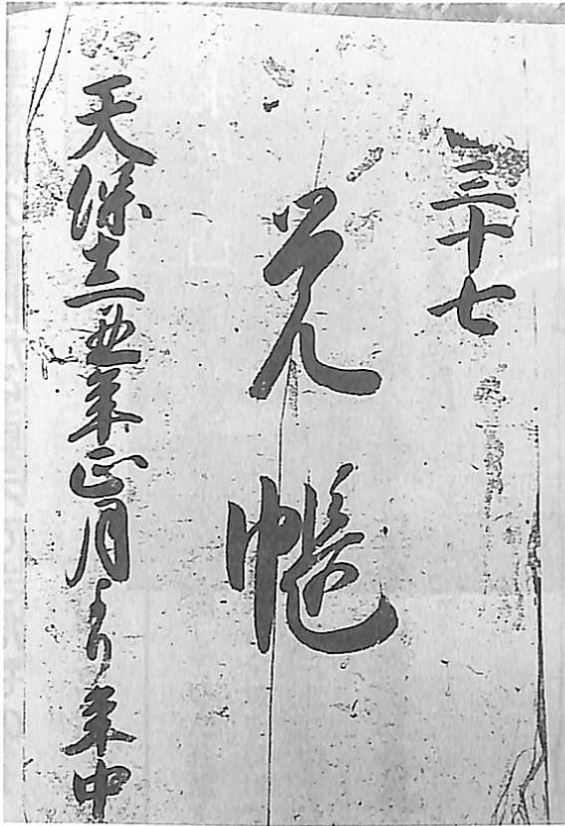 三十七
覚帳
天保十二丑年正月より年中